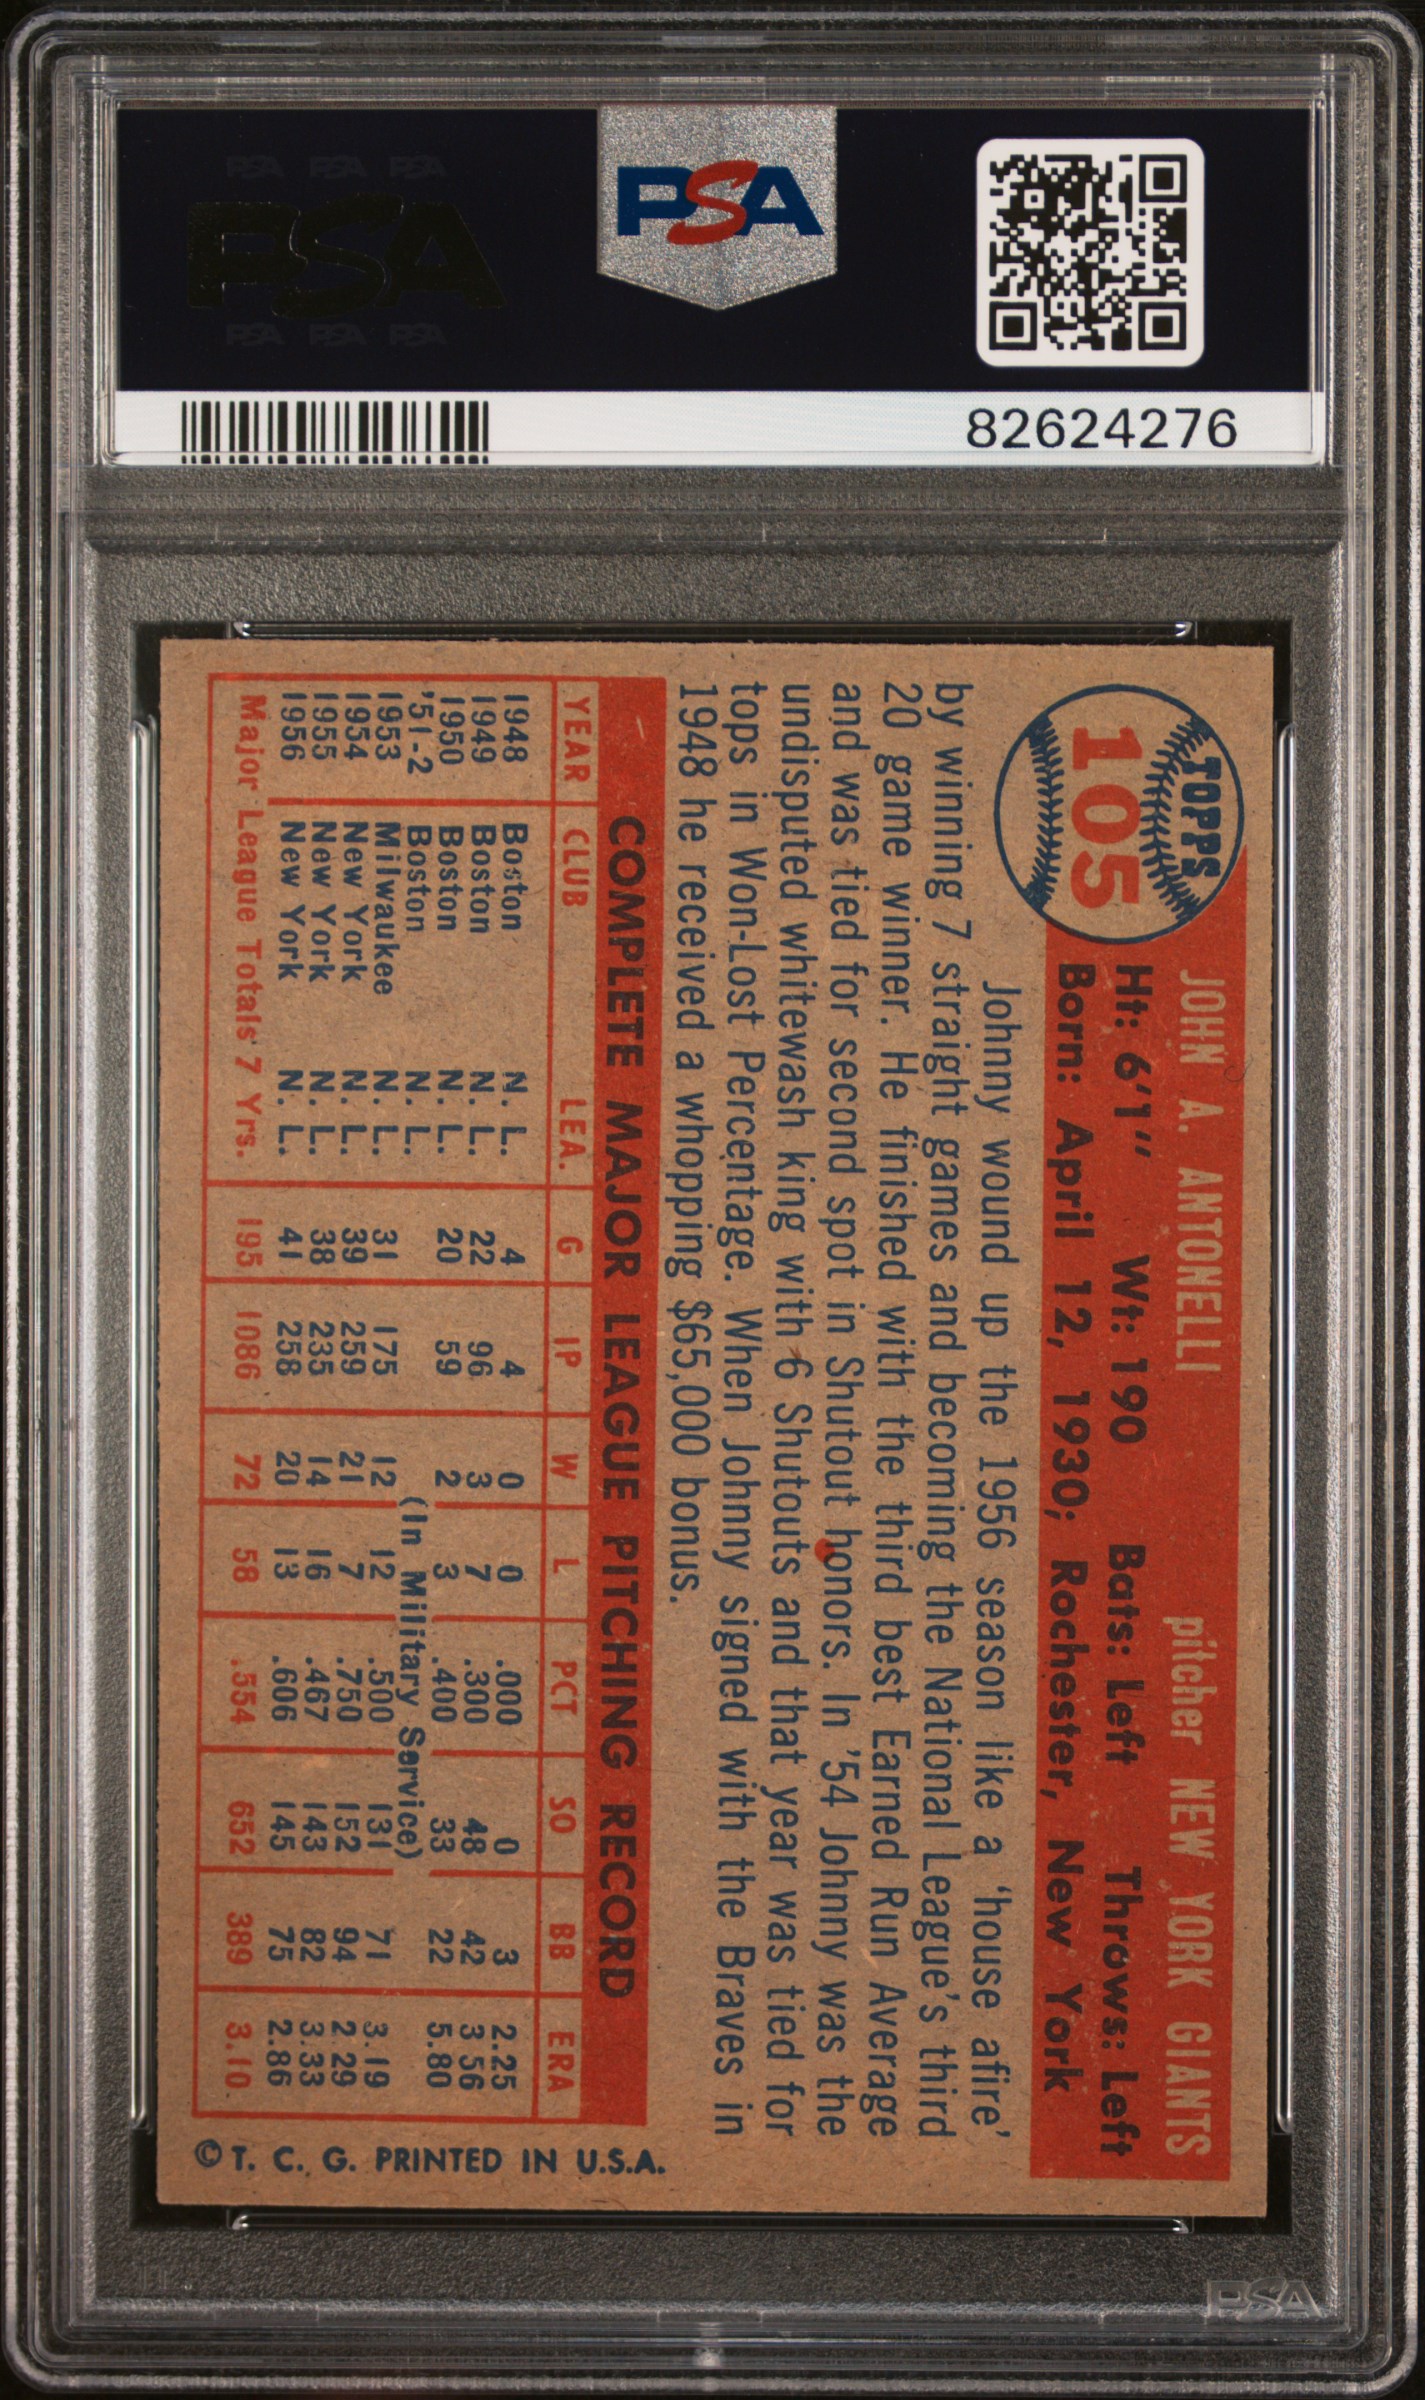 PSA PSA PSA
PSA
PSA PSA PSA
PSA
82624276
TOPPS
105
JOHN A. ANTONELLI pitcher NEW YORK GIANTS
Ht: 6'1" Wt: 190 Bats: Left Throws: Left
Born: April 12, 1930; Rochester, New York
Johnny wound up the 1956 season like a 'house afire'
by winning 7 straight games and becoming the National League's third
20 game winner. He finished with the third best Earned Run Average
and was tied for second spot in Shutout honors. In '54 Johnny was the
undisputed whitewash king with 6 Shutouts and that year was tied for
tops in Won-Lost Percentage. When Johnny signed with the Braves in
1948 he received a whopping $65,000 bonus.
COMPLETE MAJOR LEAGUE PITCHING RECORD
YEAR CLUB LEA. G IP W L PCT SO BB ERA
1948 Boston N. L. 4 4 0 0 .000 0 3 2.25
1949 Boston N. L. 22 96 3 7 .300 48 42 3.56
1950 Boston N. L. 20 59 2 3 .400 33 22 5.80
'51-2 Boston N. L. (In Military Service)
1953 Milwaukee N. L. 31 175 12 12 .500 131 71 3.19
1954 New York N. L. 39 259 21 7 .750 152 94 2.29
1955 New York N. L. 38 235 14 16 .467 143 82 3.33
1956 New York N. L. 41 258 20 13 .606 145 75 2.86
Major League Totals 7 Yrs. 195 1086 72 58 .554 652 389 3.10
© T. C. G. PRINTED IN U.S.A.
PSA